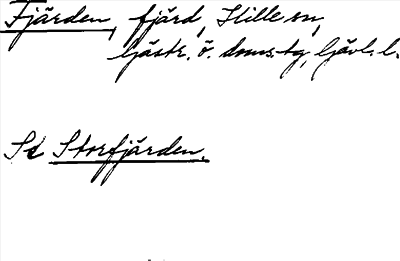 Fjärden, fjärd, Hille sn,
Gästr. ö. doms.-tg, Gävl. l.
Se Storfjärden.